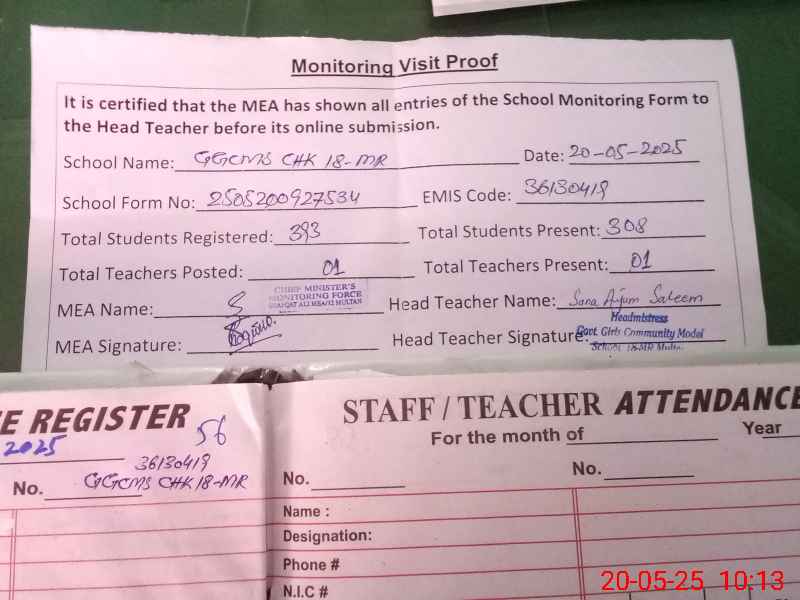 Monitoring Visit Proof
It is certified that the MEA has shown all entries of the School Monitoring Form to
the Head Teacher before its online submission.
School Name: GGCMS CHK 18-MR Date: 20-05-2025
School Form No: 2505200927534 EMIS Code: 36130419
Total Students Registered: 393 Total Students Present: 308
Total Teachers Posted: 01 Total Teachers Present: 01
CHIEF MINISTER'S
MONITORING FORCE
LIAQAT ALI MEA/12 MULTAN
MEA Name: Head Teacher Name: Sana Anjum Saleem
MEA Signature: Head Teacher Signature:
Headmistress
Govt. Girls Community Model
School 18-MR Multan
E REGISTER
2025
56
36130419
No. GGCMS CHK 18-MR
STAFF / TEACHER ATTENDANCE
For the month of Year
No. No.
Name :
Designation:
Phone #
N.I.C #
20-05-25 10:13